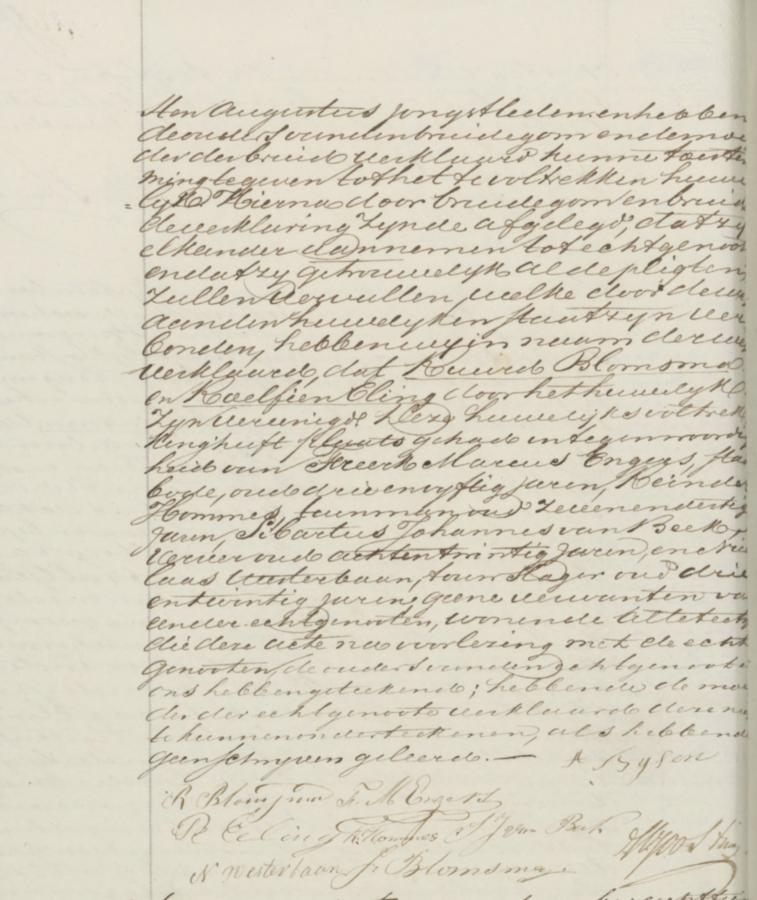 sten Augustus jongstleden en hebben
de ouders van den bruidegom en de moe
der der bruid verklaard hunne toestem
ming te geven tot het te voltrekken huwe
lijk. Hierna door bruidegom en bruid
de verklaring zynde afgelegd, dat zy
elkander aannemen tot echtgenoot
en dat zy getrouwelyk al de pligten
zullen vervullen, welke door de wet
aan den huwelyken staat zyn ver
bonden, hebben wy in naam der wet
verklaard, dat Ruurd Blomsma
en Roelfien Eling door het huwelyk
zyn vereenigd. Deze huwelijks voltrek
king heeft plaats gehad in tegenwoordig
heid van Freerk Marcus Engers, sta
bode, oud drie en vyftig jaren, Reinder
Hommes, tuinman oud zeven en dertig
jaren, Sibartus Johannes van Beek,
verver oud acht en twintig jaren, en Nico
laas Westerbaan, touwslager oud drie
en twintig jaren, geene verwanten van
een der echtgenoten, wonende alle te
die deze acte na voorlezing met de echt
genooten, de ouders van den echtgenoot
ons hebben geteekend; hebbende de moe
der der echtgenoote verklaard deze niet
te kunnen onderteekenen, als hebbende
geen schryven geleerd. —
R Blomsma F. M Engers
R Eling R. Hommes S J van Beek
N Westerbaan Blomsma